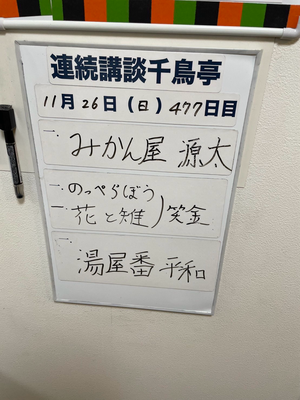 連続講談千鳥亭
11月26日(日)477日目
一、みかん屋 源太
一、のっぺらぼう
一、花と雉 笑金
一、湯屋番 平和